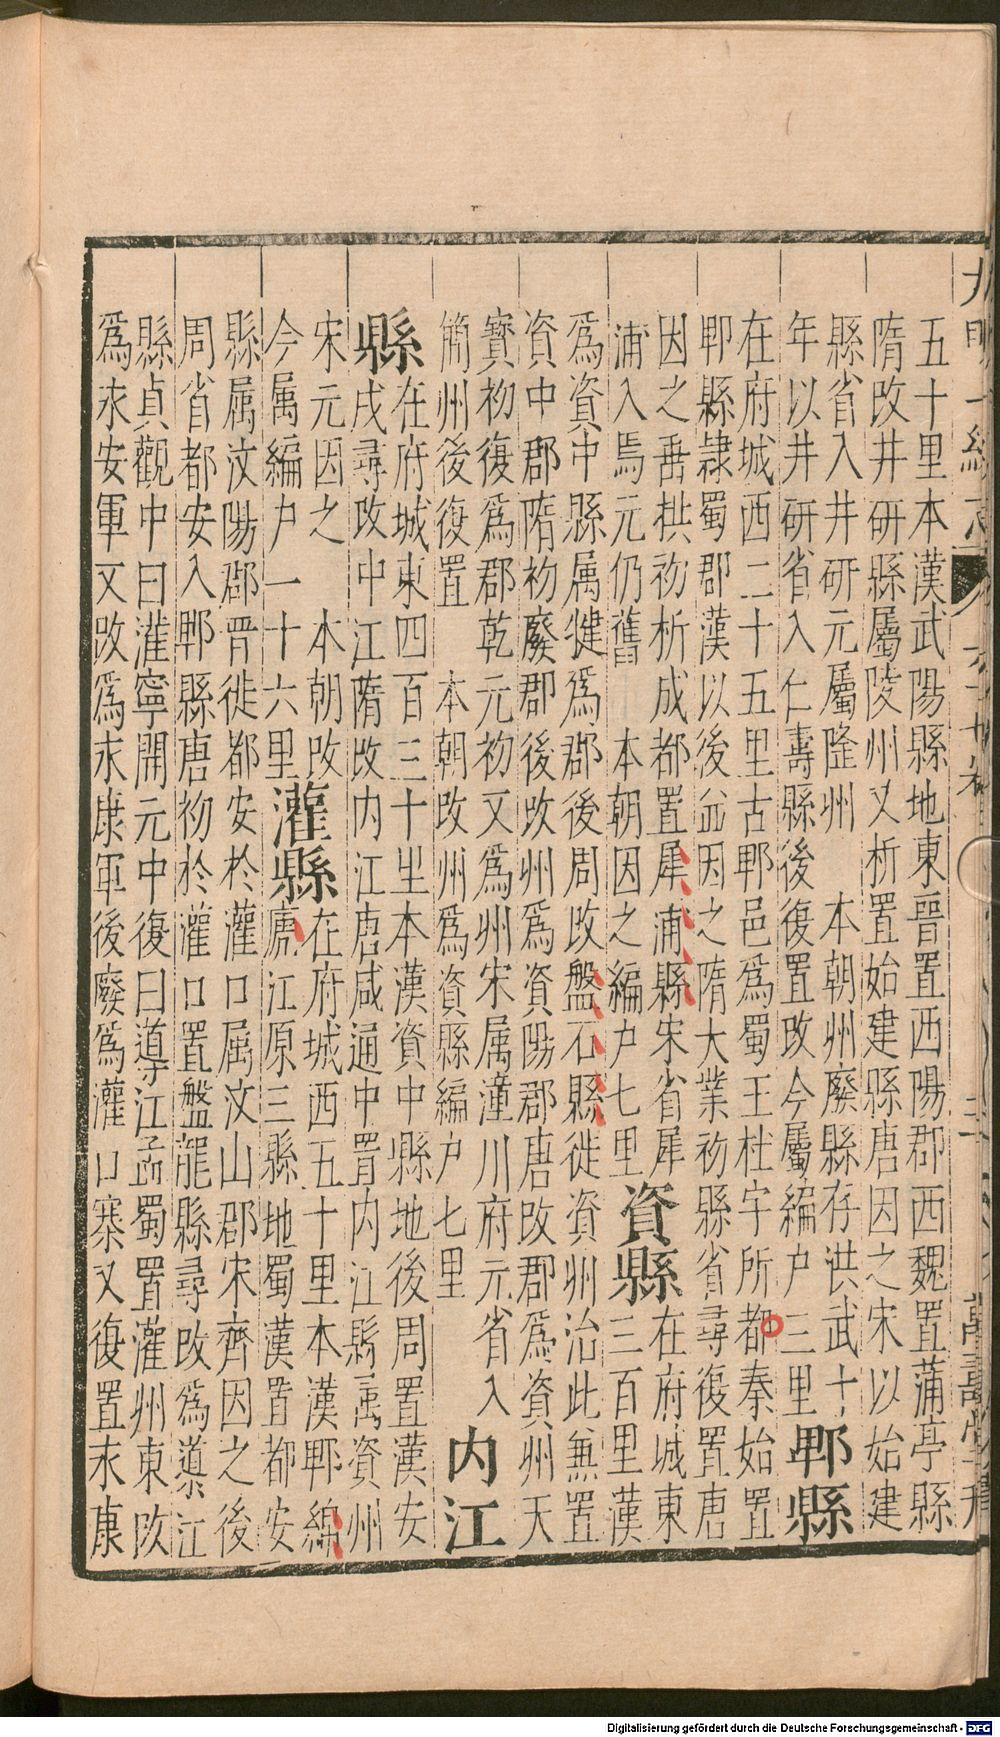 五十里本漢武陽縣地東晉置西陽郡西魏置蒲亭縣
隋改井研縣屬陵州又析置始建縣唐因之宋以始建
縣省入井研元屬隆州 本朝州廢縣存洪武十
年以井研省入仁壽縣後復置改今屬編户三里郫縣
在府城西二十五里古郫邑爲蜀王杜宇所都秦始置
郫縣隷蜀郡漢以後並因之隋大業初縣省尋復置唐
因之垂拱初析成都置犀浦縣宋省犀在府城東
浦入焉元仍舊 本朝因之編户七里資縣三百里漢
爲資中縣属犍爲郡後周改盤石縣徙資州治此無置
資中郡隋初廢郡後改州爲資陽郡唐改郡爲資州天
寳初復爲郡乾元初又爲州宋属潼川府元省入
簡州後復置 本朝改州爲資縣編户七里 内江
縣在府城東四百三十里本漢資中縣地後周置漢安
戍尋改中江隋改内江唐咸通中置内江縣属資州
宋元因之 本朝改在府城西五十里本漢郫綿
今属編户一十六里灌縣虒江原三縣地蜀漢置都安
縣属汶陽郡晋徙都安於灌口属汶山郡宋齊因之後
周省都安入郫縣唐初於灌口置盤龍縣尋改爲導江
縣貞觀中曰灌寧開元中復曰導江孟蜀置灌州東改
爲永安軍又改爲永康軍後廢爲灌口寨又復置永康
Digitalisierung gefördert durch die Deutsche Forschungsgemeinschaft - DFG